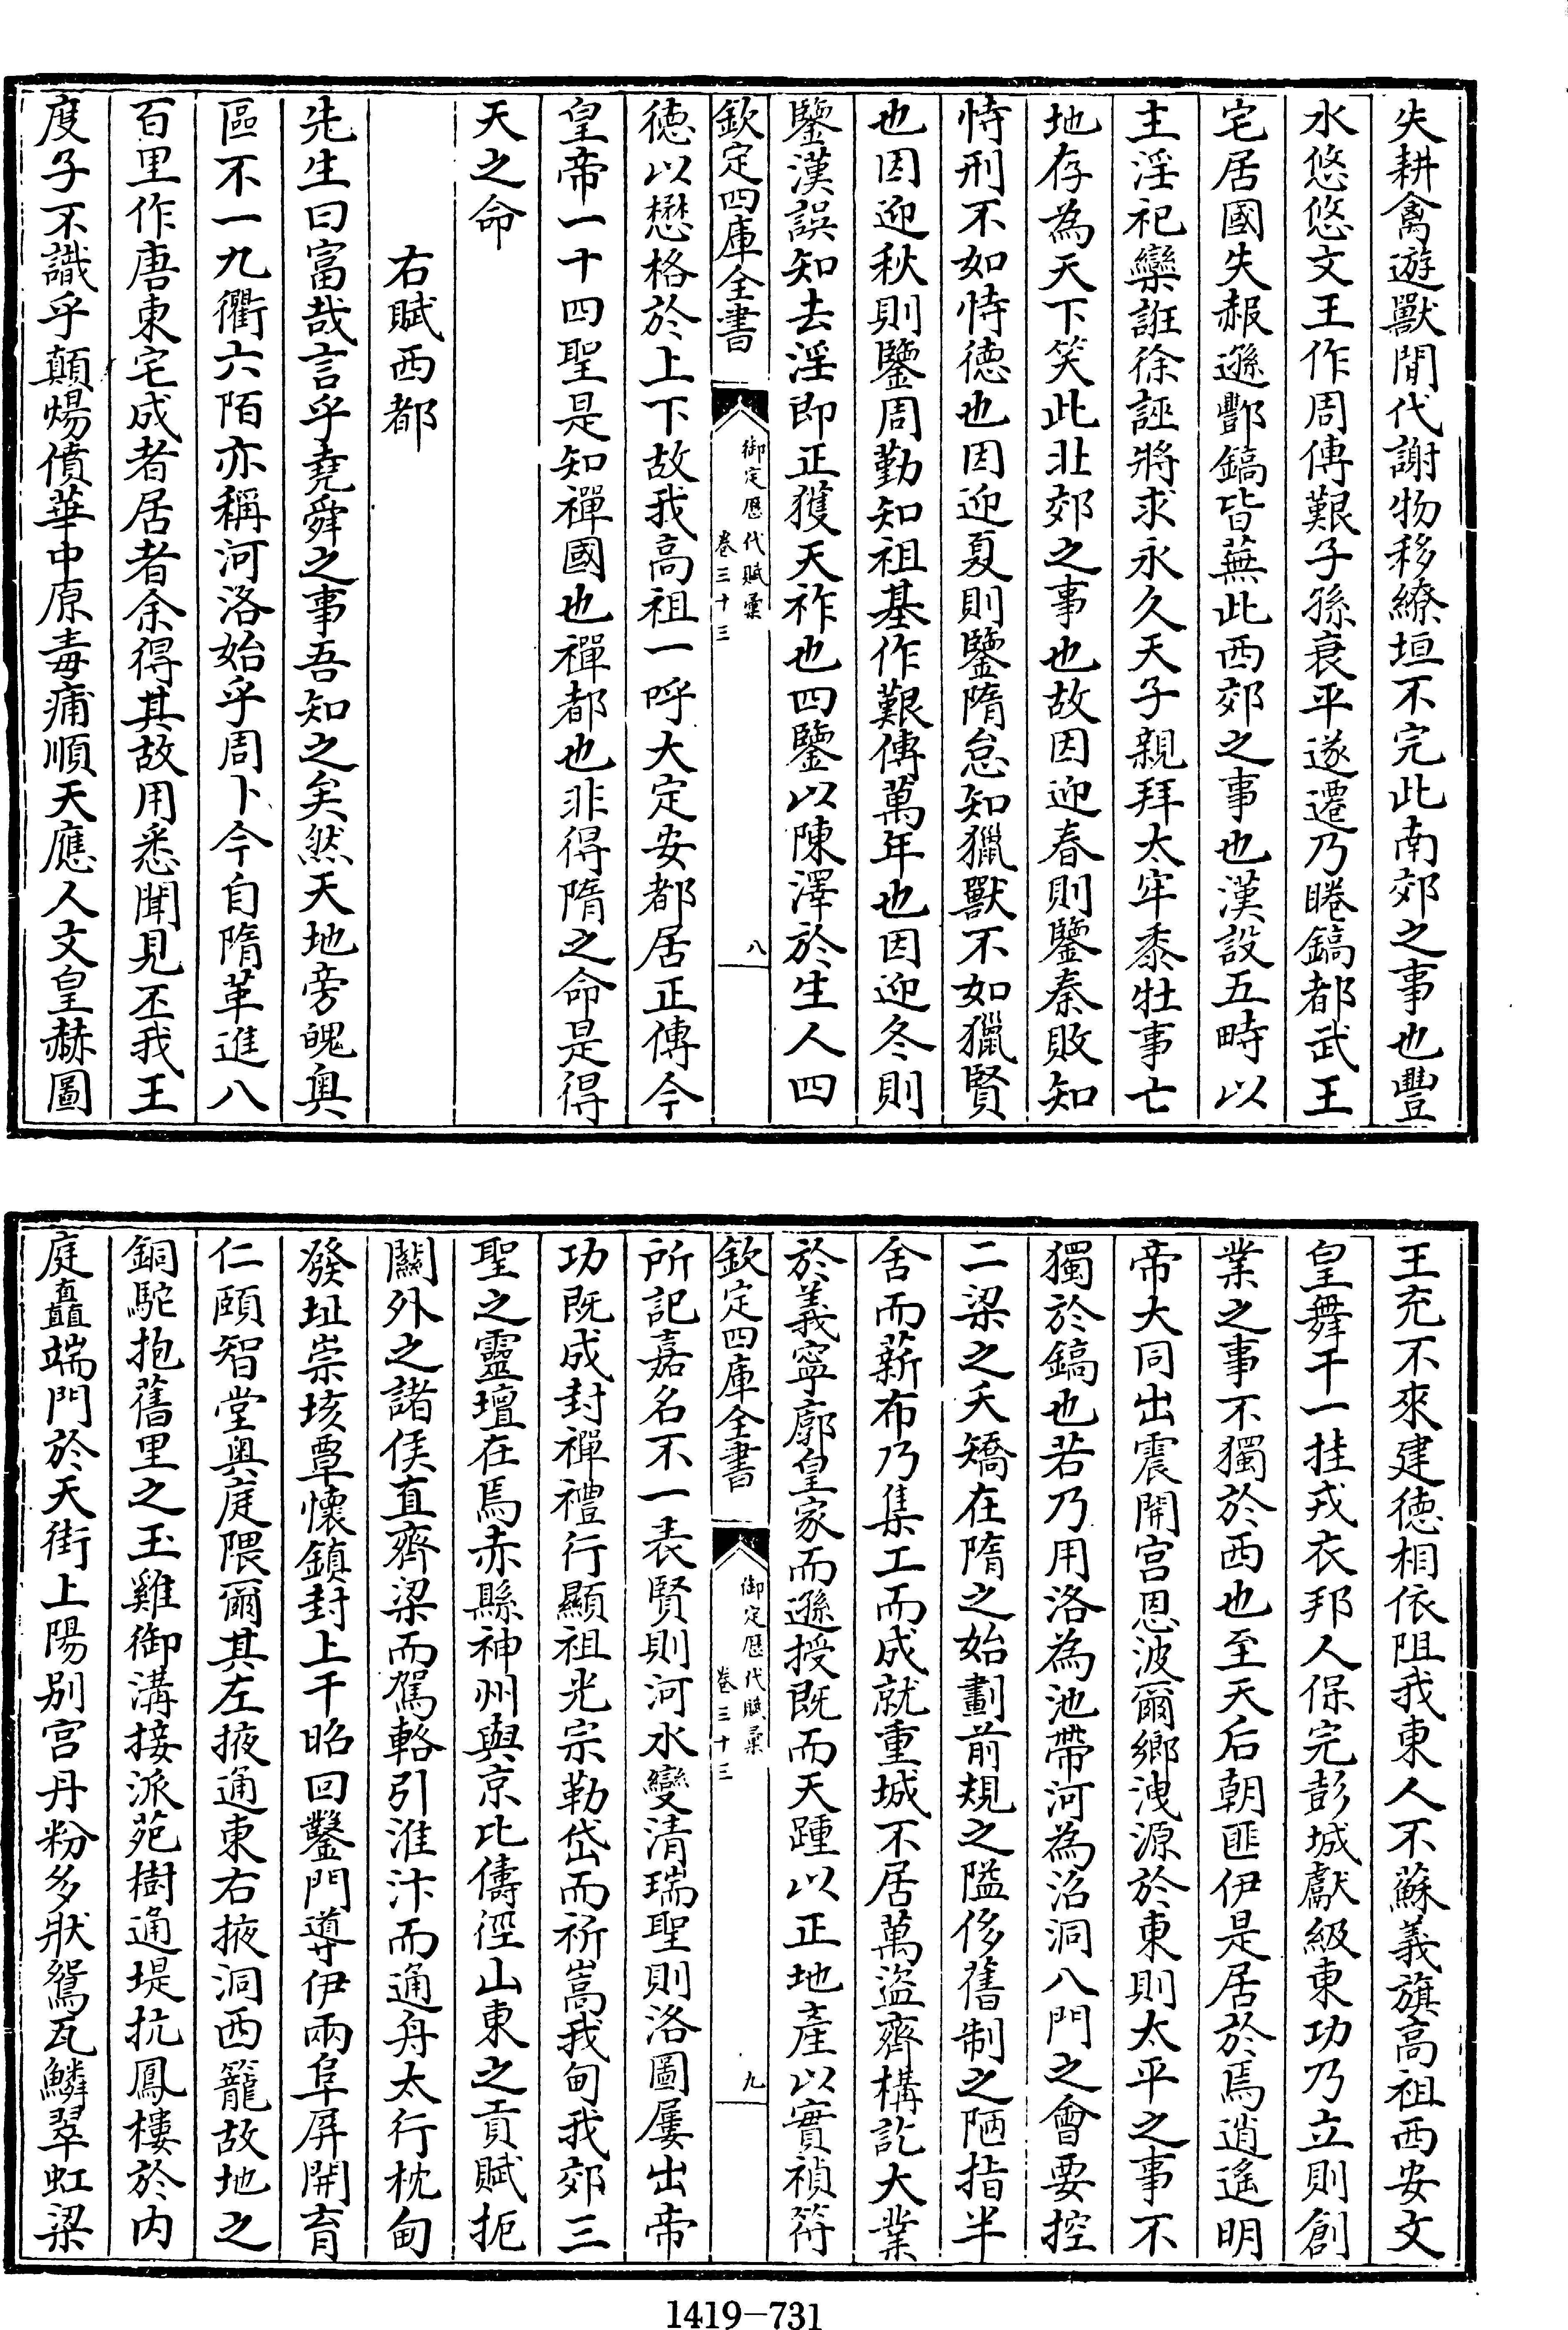 失耕禽遊獸閒代謝物移繚垣不完此南郊之事也豐
水悠悠文王作周傳艱子孫衰平遂遷乃睠鎬都武王
宅居國失赧遜酆鎬皆蕪此西郊之事也漢設五畤以
主淫祀欒誑徐誣將求永久天子親拜太牢黍牡事亡
地存為天下笑此北郊之事也故因迎春則鑒秦敗知
恃刑不如恃徳也因迎夏則鑒隋怠知獵獸不如獵賢
也因迎秋則鑒周勤知祖基作艱傳萬年也因迎冬則
鑒漢誤知去淫即正獲天祚也四鑒以陳澤於生人四
欽定四庫全書
御定歴代賦彙
卷三十三
八
徳以懋格於上下故我高祖一呼大定安都居正傳今
皇帝一十四聖是知禪國也禪都也非得隋之命是得
天之命
右賦西都
先生曰富哉言乎堯舜之事吾知之矣然天地旁魄奥
區不一九衢六陌亦稱河洛始乎周卜今自隋革進八
百里作唐東宅成者居者余得其故用悉聞見丕我王
度子不識乎顛煬僨華中原毒痡順天應人文皇赫圖
王充不來建徳相依阻我東人不蘇義旗高祖西安文
皇舞干一挂戎衣邦人保完彭城獻級東功乃立則創
業之事不獨於西也至天后朝匪伊是居於焉逍遙明
帝大同出震開宫恩波爾鄉洩源於東則太平之事不
獨於鎬也若乃用洛為池帶河為沼洞八門之會要控
二梁之夭矯在隋之始劃前規之隘侈舊制之陋指半
舍而薪布乃集工而成就重城不居萬盜齊構訖大業
於義寧廓皇家而遜授既而天踵以正地產以實禎符
欽定四庫全書
御定歴代賦彙
卷三十三
九
所記嘉名不一表賢則河水變清瑞聖則洛圖屢出帝
功既成封禪禮行顯祖光宗勒岱而祈嵩我甸我郊三
聖之靈壇在焉赤縣神州與京比儔徑山東之貢賦扼
關外之諸侯直齊梁而駕輅引淮汴而通舟太行枕甸
發址崇垓覃懷鎮封上干昭回鑿門導伊兩阜屏開育
仁頤智堂奥庭隈爾其左掖通東右掖洞西籠故地之
銅駝抱舊里之玉雞御溝接派苑樹通堤抗鳳樓於内
庭矗端門於天街上陽别宫丹粉多狀鴛瓦鱗翠虹梁
1419-731